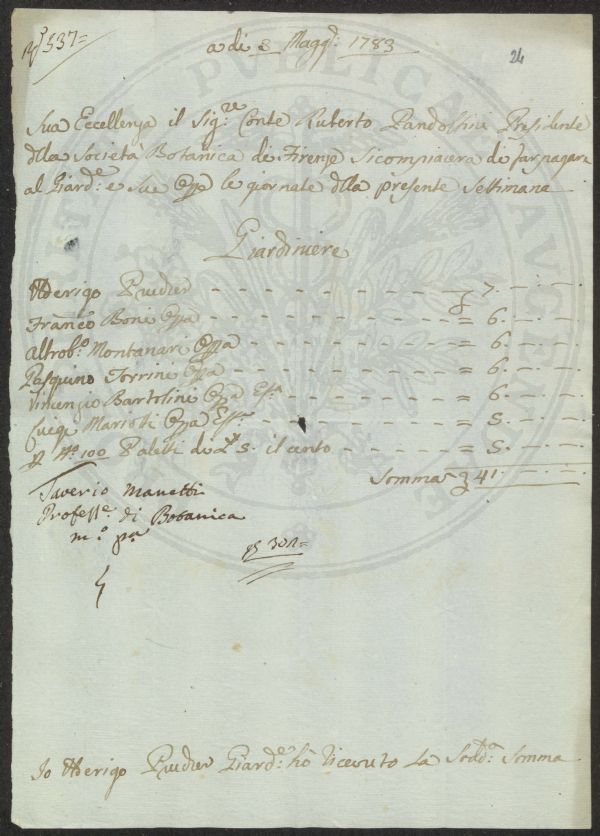 537=
a di 3 Magg.º 1783
24
Sua Eccellenza il Sig.re Conte Ruberto Pandolfini Presidente
della Società Botanica di Firenze si compiacera di far pagare
al Giard.e e Sue Opp.e le giornate della presente Settimana
Giardiniere
Alderigo = 7. — —
Franco Boni Oppa = 6. — —
Altrob.o Montanari Oppa = 6. — —
Pasquino Torrini Oppa = 6. — —
Vincenzio Bartolini Oppa = 6. — —
Luigi Mariotti Oppa = 5. — —
N.o 100 Paletti di 5. il cento = 5. — —
Somma 41. — —
Saverio Manetti
Profess.e di Botanica
m.o p.a
302=
Io Alderigo Giard.e hò ricevuto la Sod.a Somma
PUBLICAE